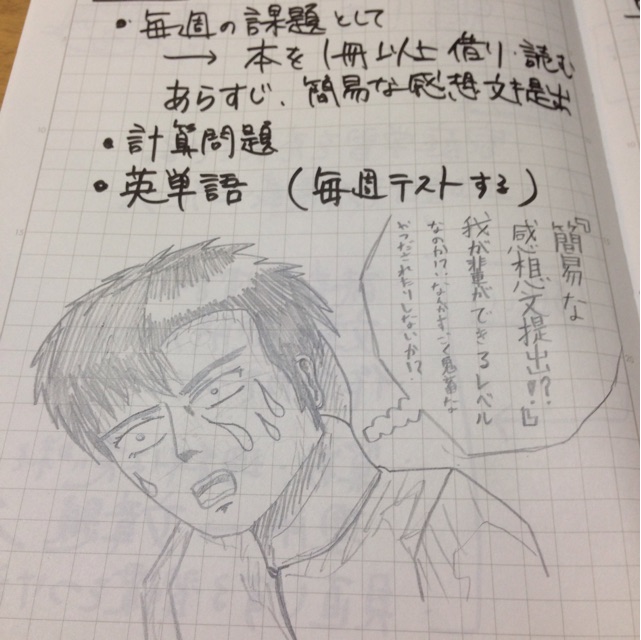 ・毎週の課題として
→ 本を1冊以上借り・読む
あらすじ、簡易な感想文提出
・計算問題
・英単語 (毎週テストする)
「簡易な
感想文提出!?」
我が輩ができるレベル
なのか!?
だされたりしないか!?